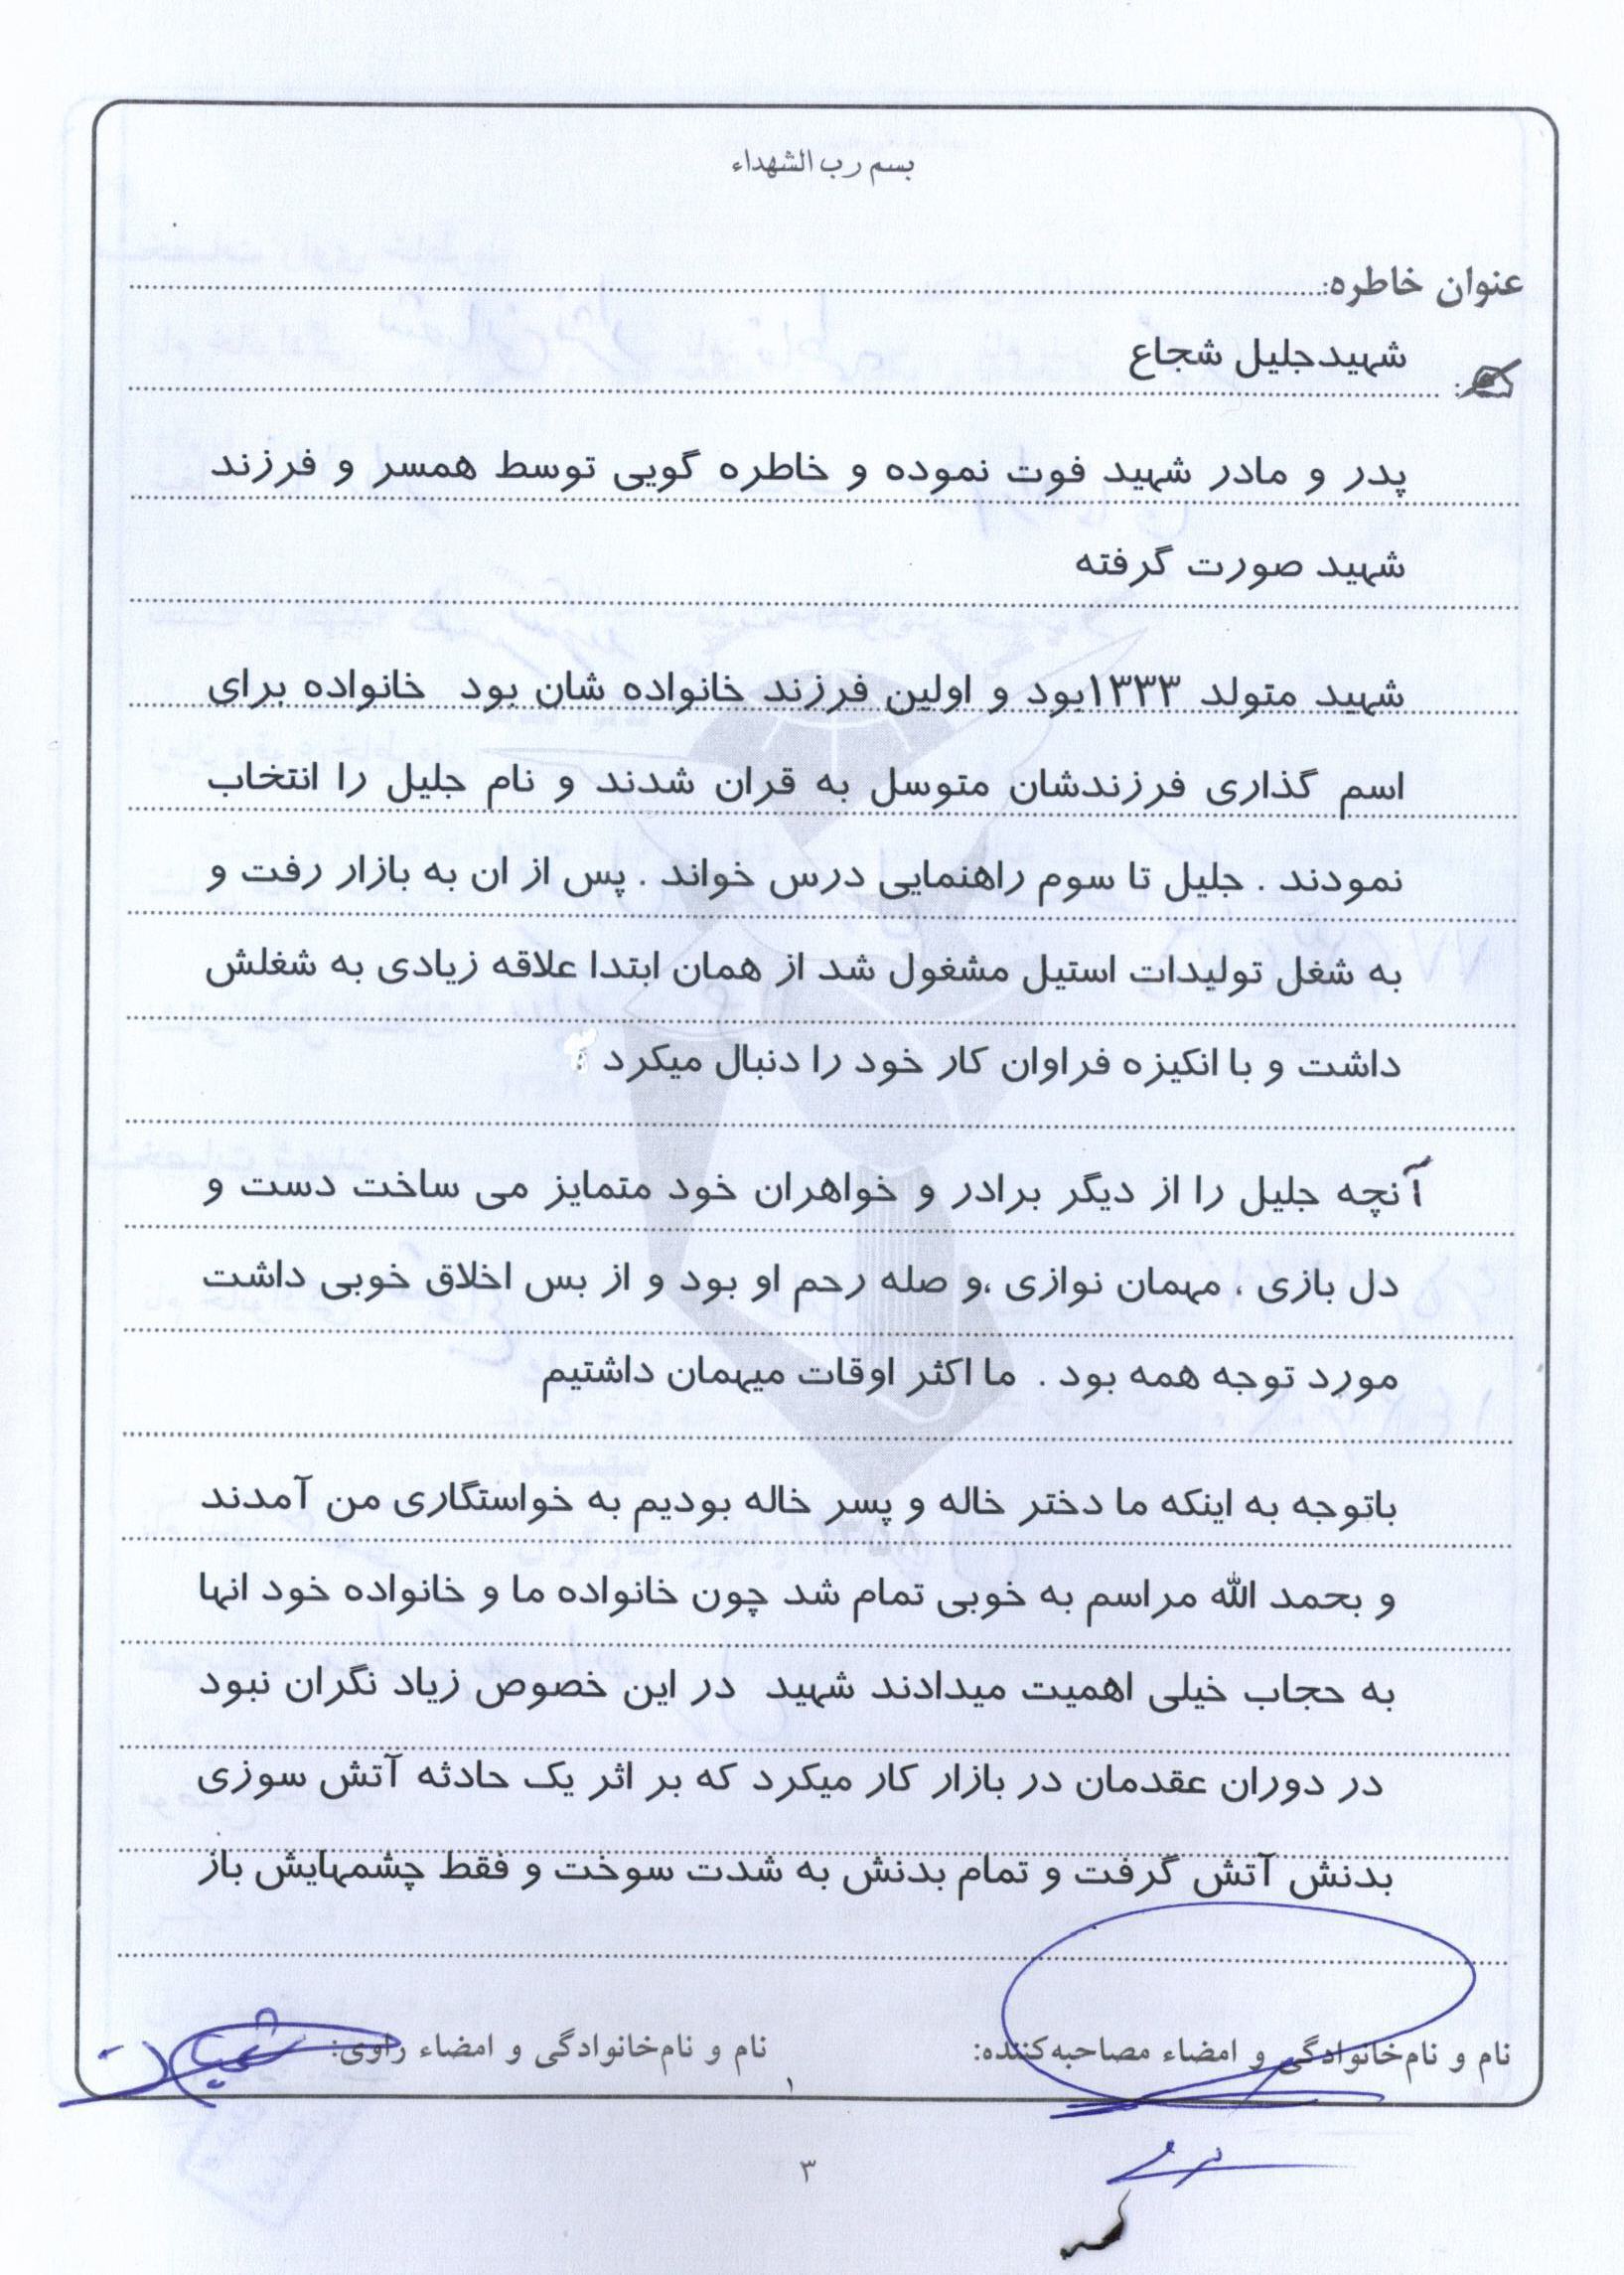 بسم رب الشهداء
عنوان خاطره:
شهیدجلیل شجاع
پدر و مادر شهید فوت نموده و خاطره گویی توسط همسر و فرزند
شهید صورت گرفته
شهید متولد ۱۳۳۳بود و اولین فرزند خانواده شان بود خانواده برای
اسم گذاری فرزندشان متوسل به قران شدند و نام جلیل را انتخاب
نمودند . جلیل تا سوم راهنمایی درس خواند . پس از ان به بازار رفت و
به شغل تولیدات استیل مشغول شد از همان ابتدا علاقه زیادی به شغلش
داشت و با انکیزه فراوان کار خود را دنبال میکرد
آنچه جلیل را از دیگر برادر و خواهران خود متمایز می ساخت دست و
دل بازی ، مهمان نوازی ،و صله رحم او بود و از بس اخلاق خوبی داشت
مورد توجه همه بود . ما اکثر اوقات میهمان داشتیم
باتوجه به اینکه ما دختر خاله و پسر خاله بودیم به خواستگاری من آمدند
و بحمد الله مراسم به خوبی تمام شد چون خانواده ما و خانواده خود انها
به حجاب خیلی اهمیت میدادند شهید در این خصوص زیاد نگران نبود
در دوران عقدمان در بازار کار میکرد که بر اثر یک حادثه آتش سوزی
بدنش آتش گرفت و تمام بدنش به شدت سوخت و فقط چشمهایش باز
نام و نام‌خانوادگی و امضاء مصاحبه‌کننده: نام و نام‌خانوادگی و امضاء راوی:
۱
۳